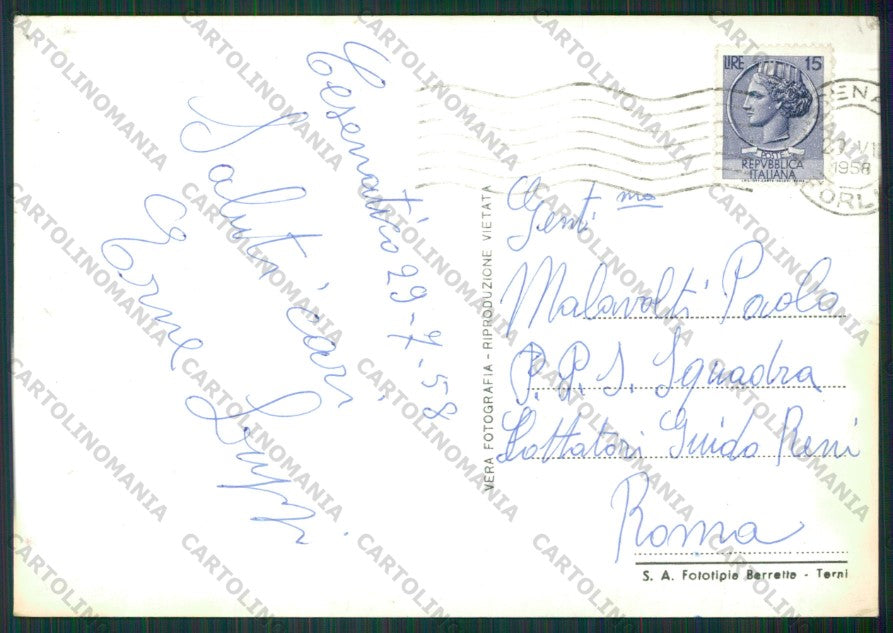 Cesenatico 29-7.58
Saluti cari
LIRE 15
POSTE
REPVBBLICA
ITALIANA
1958
FORLI
VERA FOTOGRAFIA - RIPRODUZIONE VIETATA
Gent ma
Malavolti Paola
P.P.S. Squadra
Lottatori Guido Reni
Roma
S. A. Fototipia Berretta - Terni
CARTOLINOMANIA